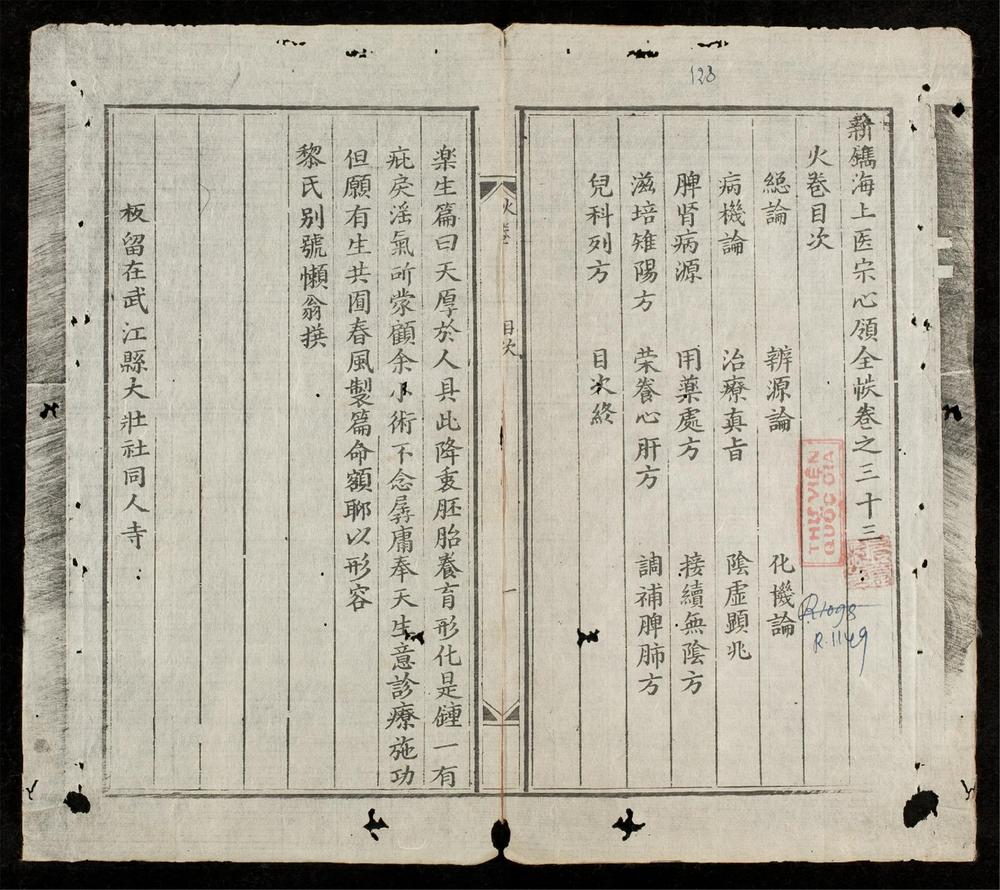 新鐫海上医宗心領全帙卷之三十三
火卷目次
總論 辨源論 化機論
病機論 治療真旨 陰虛顕兆
脾肾病源 用藥處方 接續無陰方
滋培雉陽方 荣養心肝方 調補脾肺方
兒科列方 目次終
火卷 目次 一
楽生篇曰天厚於人具此降衷胚胎養育形化是鍾一有
疵戾滛氣所蒙顧余小術不念孱庸奉天生意診療施功
但願有生共囿春風製篇命額聊以形容
黎氏别號懶翁撰
板留在武江縣大壯社同人寺
123
THƯ VIỆN
QUỐC GIA
R.1098
R.1149